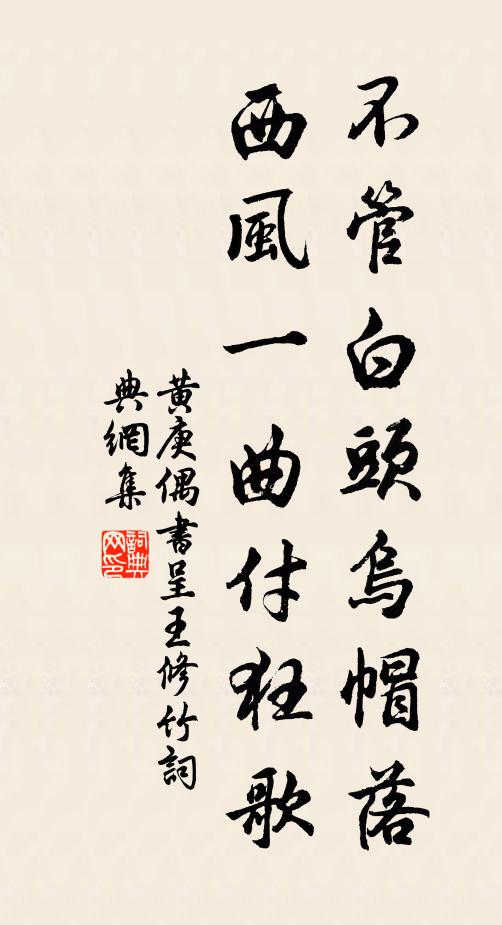 不管白頭烏帽落
西風一曲付狂歌
黃庚偶書呈王修竹詞
典網集
詞典
网印